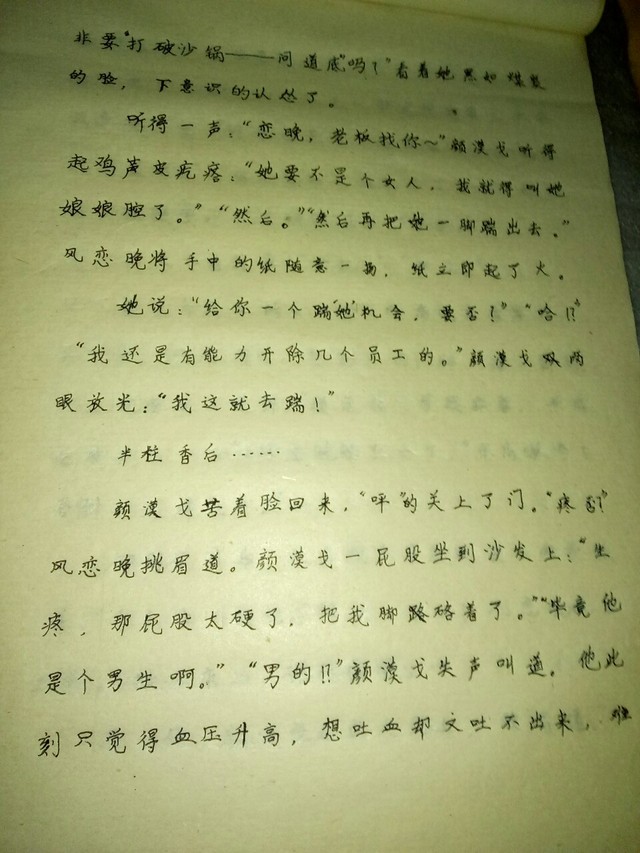 非要“打破沙锅——问道底”吗？”看着她黑如煤炭
的脸，下意识的认怂了。
听得一声：“恋晚，老板找你～”颜漠戈听得
起鸡声皮疙瘩：“她要不是个女人，我就得叫她
娘娘腔了。”“然后。”“然后再把她一脚踹出去。”
风恋晚将手中的纸随意一扬，纸立即起了火。
她说：“给你一个踹“她”机会，要否？”“哈!?”
“我还是有能力开除几个员工的。”颜漠戈双两
眼放光：“我这就去踹！”
半柱香后……
颜漠戈苦着脸回来，“呯”的关上了门。“疼否？”
风恋晚挑眉道。颜漠戈一屁股坐到沙发上：“生
疼，那屁股太硬了，把我脚硌着了。”“毕竟他
是个男生啊。”“男的!?”颜漠戈失声叫道。他此
刻只觉得血压升高，想吐血却又吐不出来，难